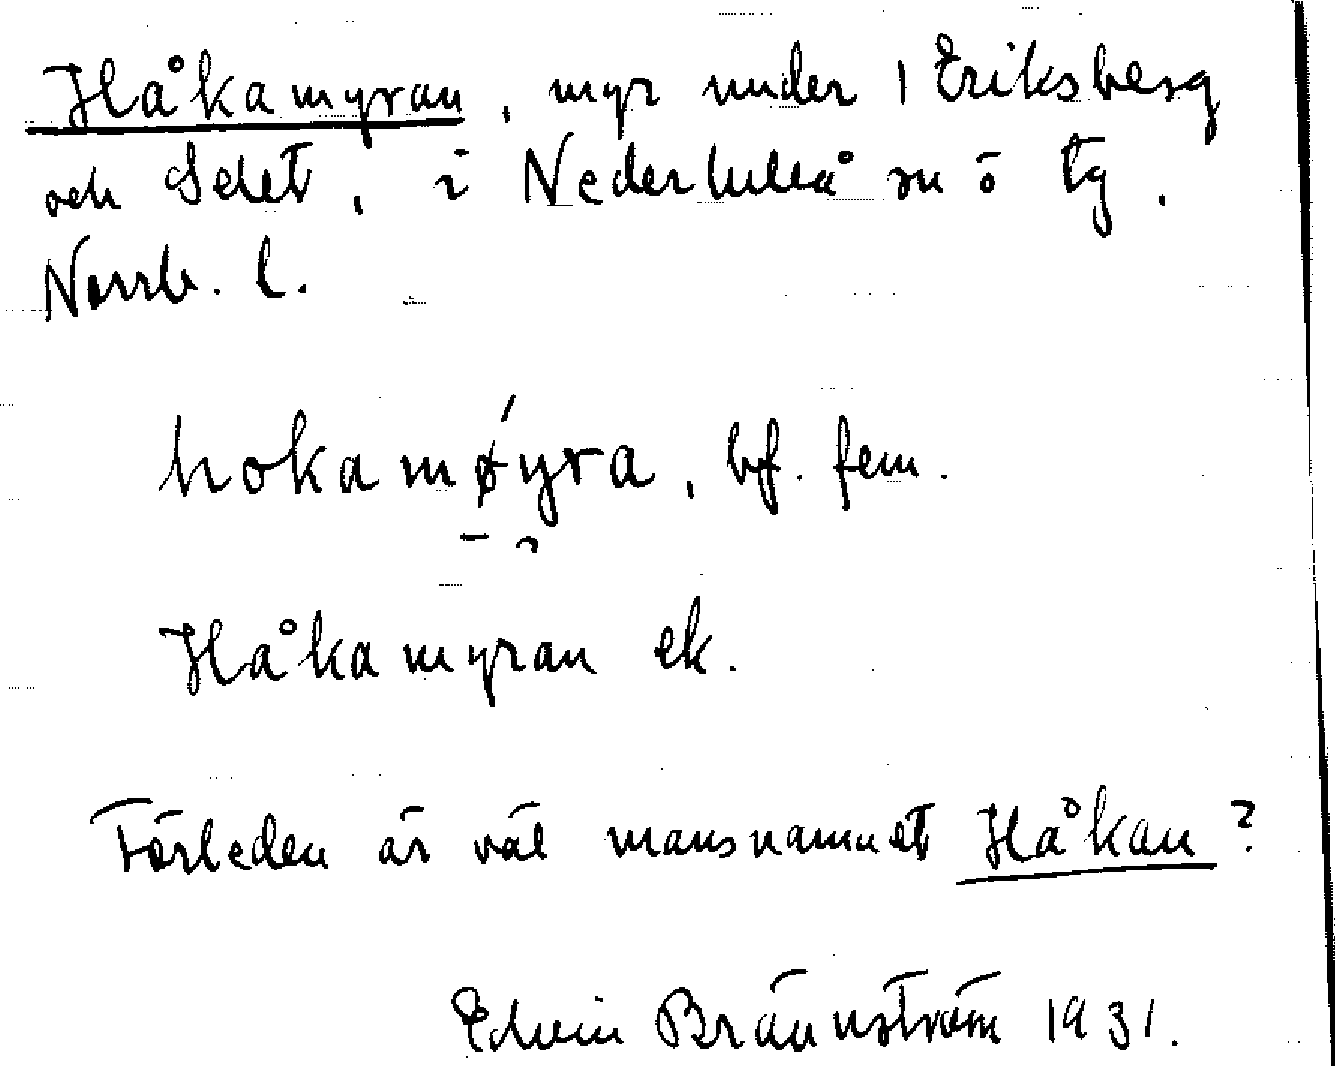 Håkamyran, myr under 1 Eriksberg
och Selet, i Nederluleå sn ö tg,
Norrb. l.
hokamǿyra, bf. fem.
Håkamyran ek.
Förleden är väl mansnamnet Håkan?
Edvin Brännström 1931.